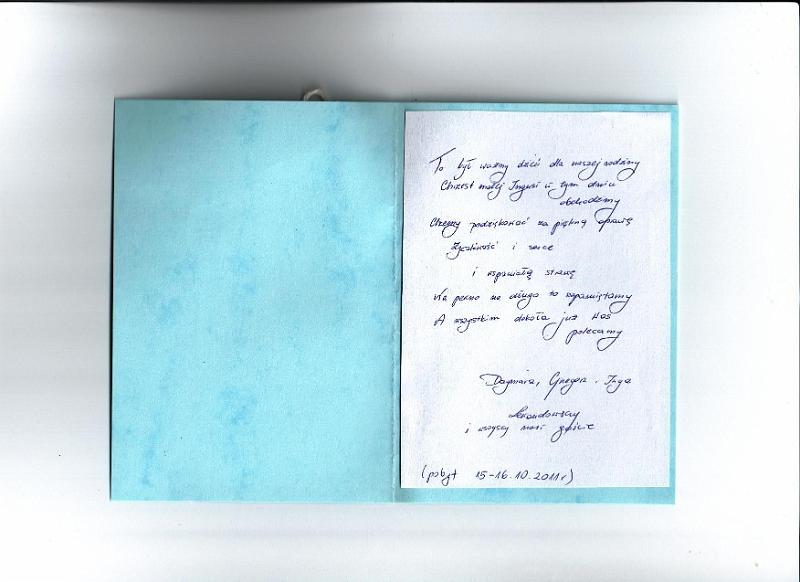 To był ważny dzień dla naszej rodziny
Chrzest małej Ingusi w tym dniu
obchodzimy
Chcemy podziękować za piękną oprawę
Życzliwość i serce
i wspaniałą strawę
Na pewno na długo to zapamiętamy
A wszystkim dokoła już Was
polecamy
Dagmara, Grzegorz i Inga
Lewandowscy
i wszyscy nasi goście
(pobyt 15-16.10.2011r)